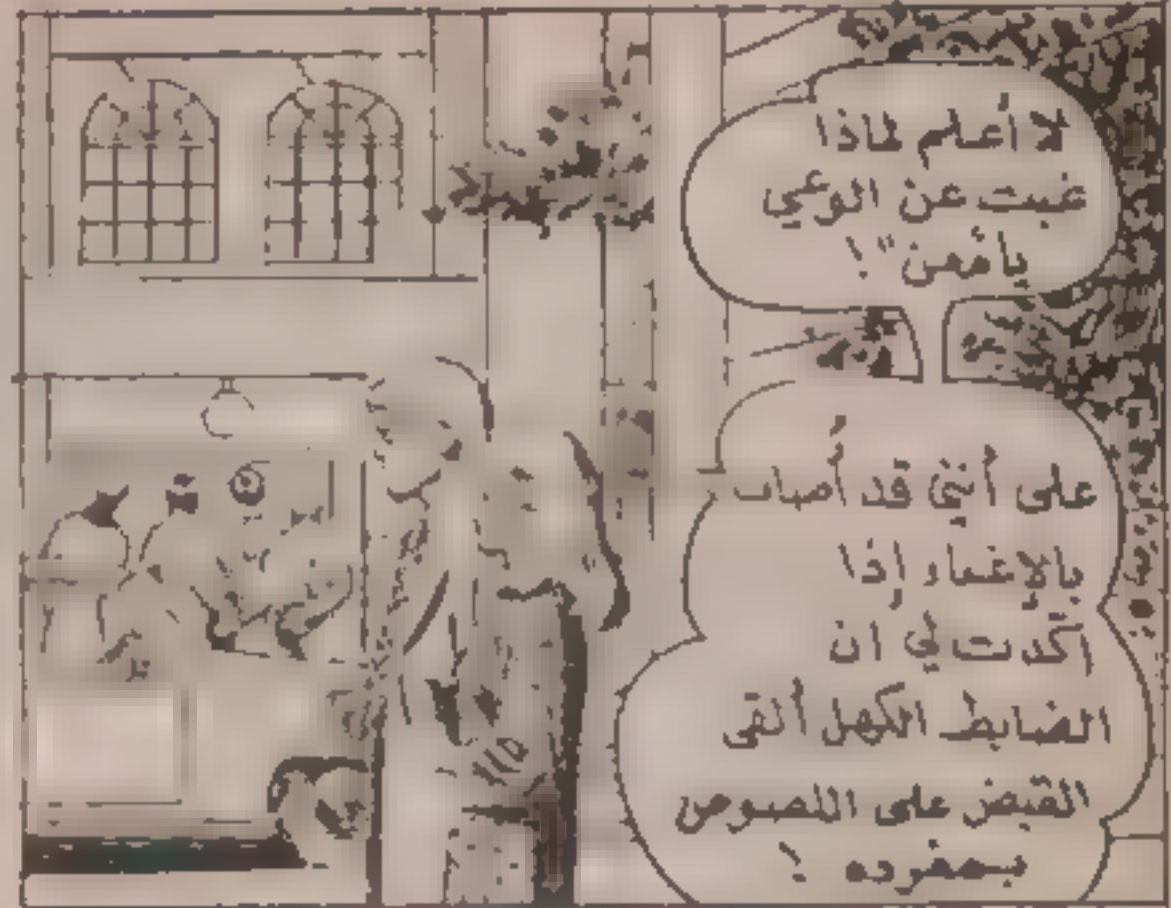 لا أعلم لماذا
غبت عن الوعي
على أنني قد أُصاب
بالإغماء إذا
أكدت لي ان
الضابط الكهل ألقى
القبض على اللصوص
بمفرده !